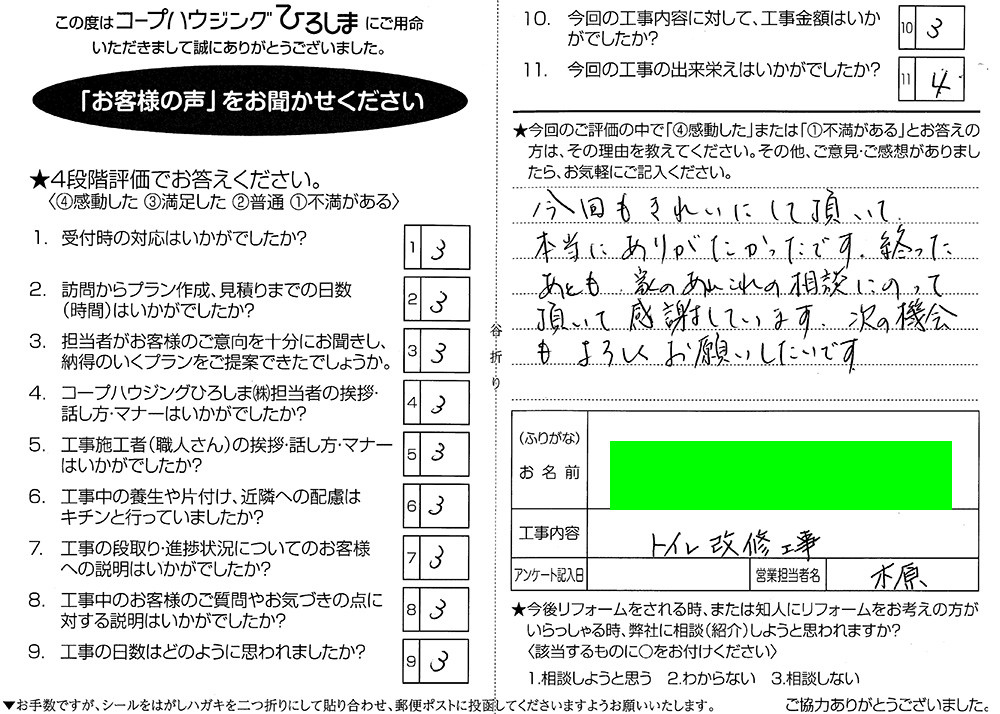 この度はコープハウジングひろしまにご用命
いただきまして誠にありがとうございました。
「お客様の声」をお聞かせください
★4段階評価でお答えください。
〈④感動した ③満足した ②普通 ①不満がある〉
1. 受付時の対応はいかがでしたか?
1 3
2. 訪問からプラン作成、見積りまでの日数
(時間)はいかがでしたか?
2 3
3. 担当者がお客様のご意向を十分にお聞きし、
納得のいくプランをご提案できたでしょうか。
3 3
4. コープハウジングひろしま㈱担当者の挨拶・
話し方・マナーはいかがでしたか?
4 3
5. 工事施工者(職人さん)の挨拶・話し方・マナー
はいかがでしたか?
5 3
6. 工事中の養生や片付け、近隣への配慮は
キチンと行っていましたか?
6 3
7. 工事の段取り・進捗状況についてのお客様
への説明はいかがでしたか?
7 3
8. 工事中のお客様のご質問やお気づきの点に
対する説明はいかがでしたか?
8 3
9. 工事の日数はどのように思われましたか?
9 3
▼お手数ですが、シールをはがしハガキを二つ折りにして貼り合わせ、郵便ポストに投函してくださいますようお願いいたします。
谷折り
10. 今回の工事内容に対して、工事金額はいか
がでしたか?
10 3
11. 今回の工事の出来栄えはいかがでしたか?
11 4
★今回のご評価の中で「④感動した」または「①不満がある」とお答えの
方は、その理由を教えてください。その他、ご意見・ご感想がありまし
たら、お気軽にご記入ください。
今回もきれいにして頂いて
本当にありがたかったです。終った
あとも 家のあれこれの相談にのって
頂いて 感謝しています。次の機会
も よろしく お願いしたいです
(ふりがな)
お名前
工事内容 トイレ改修工事
アンケート記入日 営業担当者名 木原
★今後リフォームをされる時、または知人にリフォームをお考えの方が
いらっしゃる時、弊社に相談(紹介)しようと思われますか?
〈該当するものに○をお付けください〉
1.相談しようと思う 2.わからない 3.相談しない
ご協力ありがとうございました。